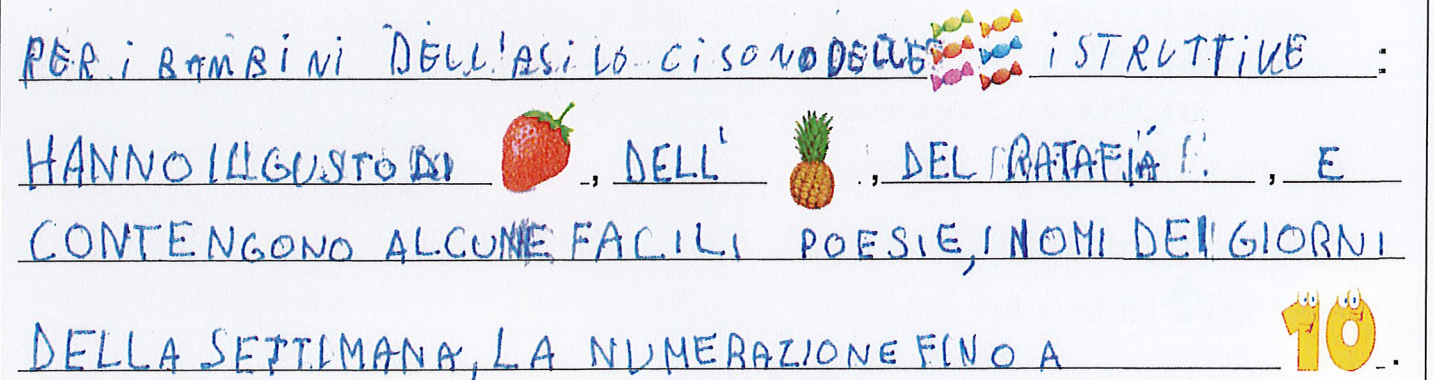 PER i BAMBiNi DELL'ASiLO Ci SONO DELLE iSTRUTTiVE :
HANNO IL GUSTO DI , DELL' , DEL RATAFIÀ , E
CONTENGONO ALCUNE FACILI POESIE, I NOMI DEI GIORNI
DELLA SETTIMANA, LA NUMERAZIONE FINO A 10 .